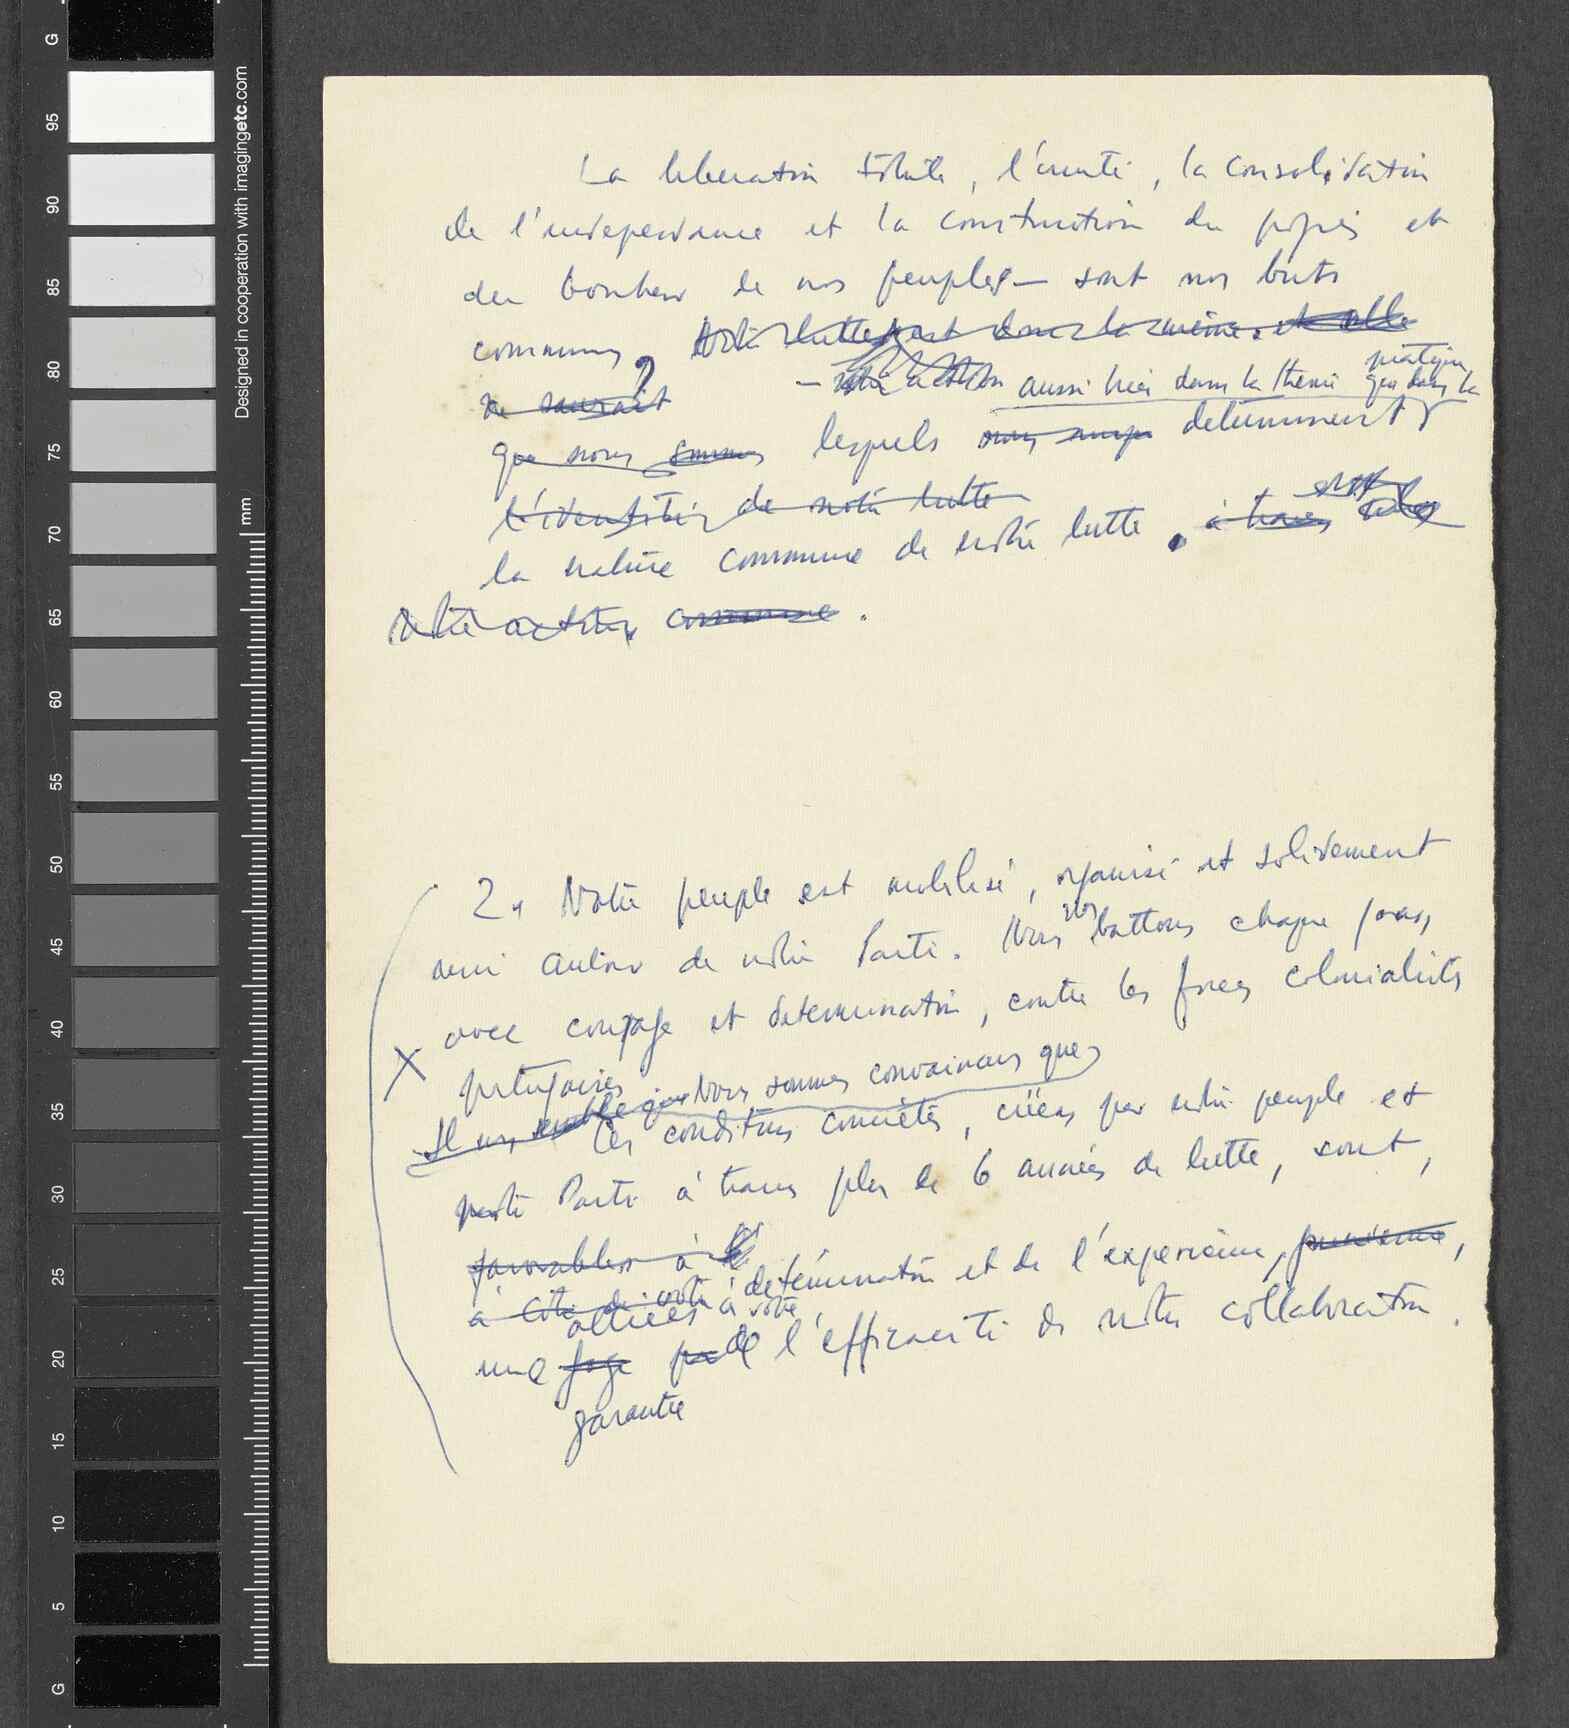 La liberation totale, l'unité, la consolidation
de l'independance et la construction du progrès et
du bonheur de nos peuples — sont nos buts
communs, notre lutte est donc la même. et elle
ne saurait — notre action aussi bien dans la théorie que dans la pratique
que nous sommes lesquels determinent
l'identité de notre lutte
la nature commune de notre lutte. à travers
notre action commune.
2. Notre peuple est mobilisé, organisé et solidement
uni autour de notre Parti. Nous nous battons chaque jour,
avec courage et determination, contre les forces colonialistes
X portugaises
Il nous semble que Nous sommes convaincus que
les conditions concrètes, créées par notre peuple et
notre Parti à travers plus de 6 années de lutte, sont,
favorables à
à côté de votre determination et de l'experience,
alliées à votre
une de l'efficacité de notre collaboration.
garantie
Designed in cooperation with imagingetc.com
mm
G
95
90
85
80
75
70
65
60
55
50
45
40
35
30
25
20
15
10
5
G